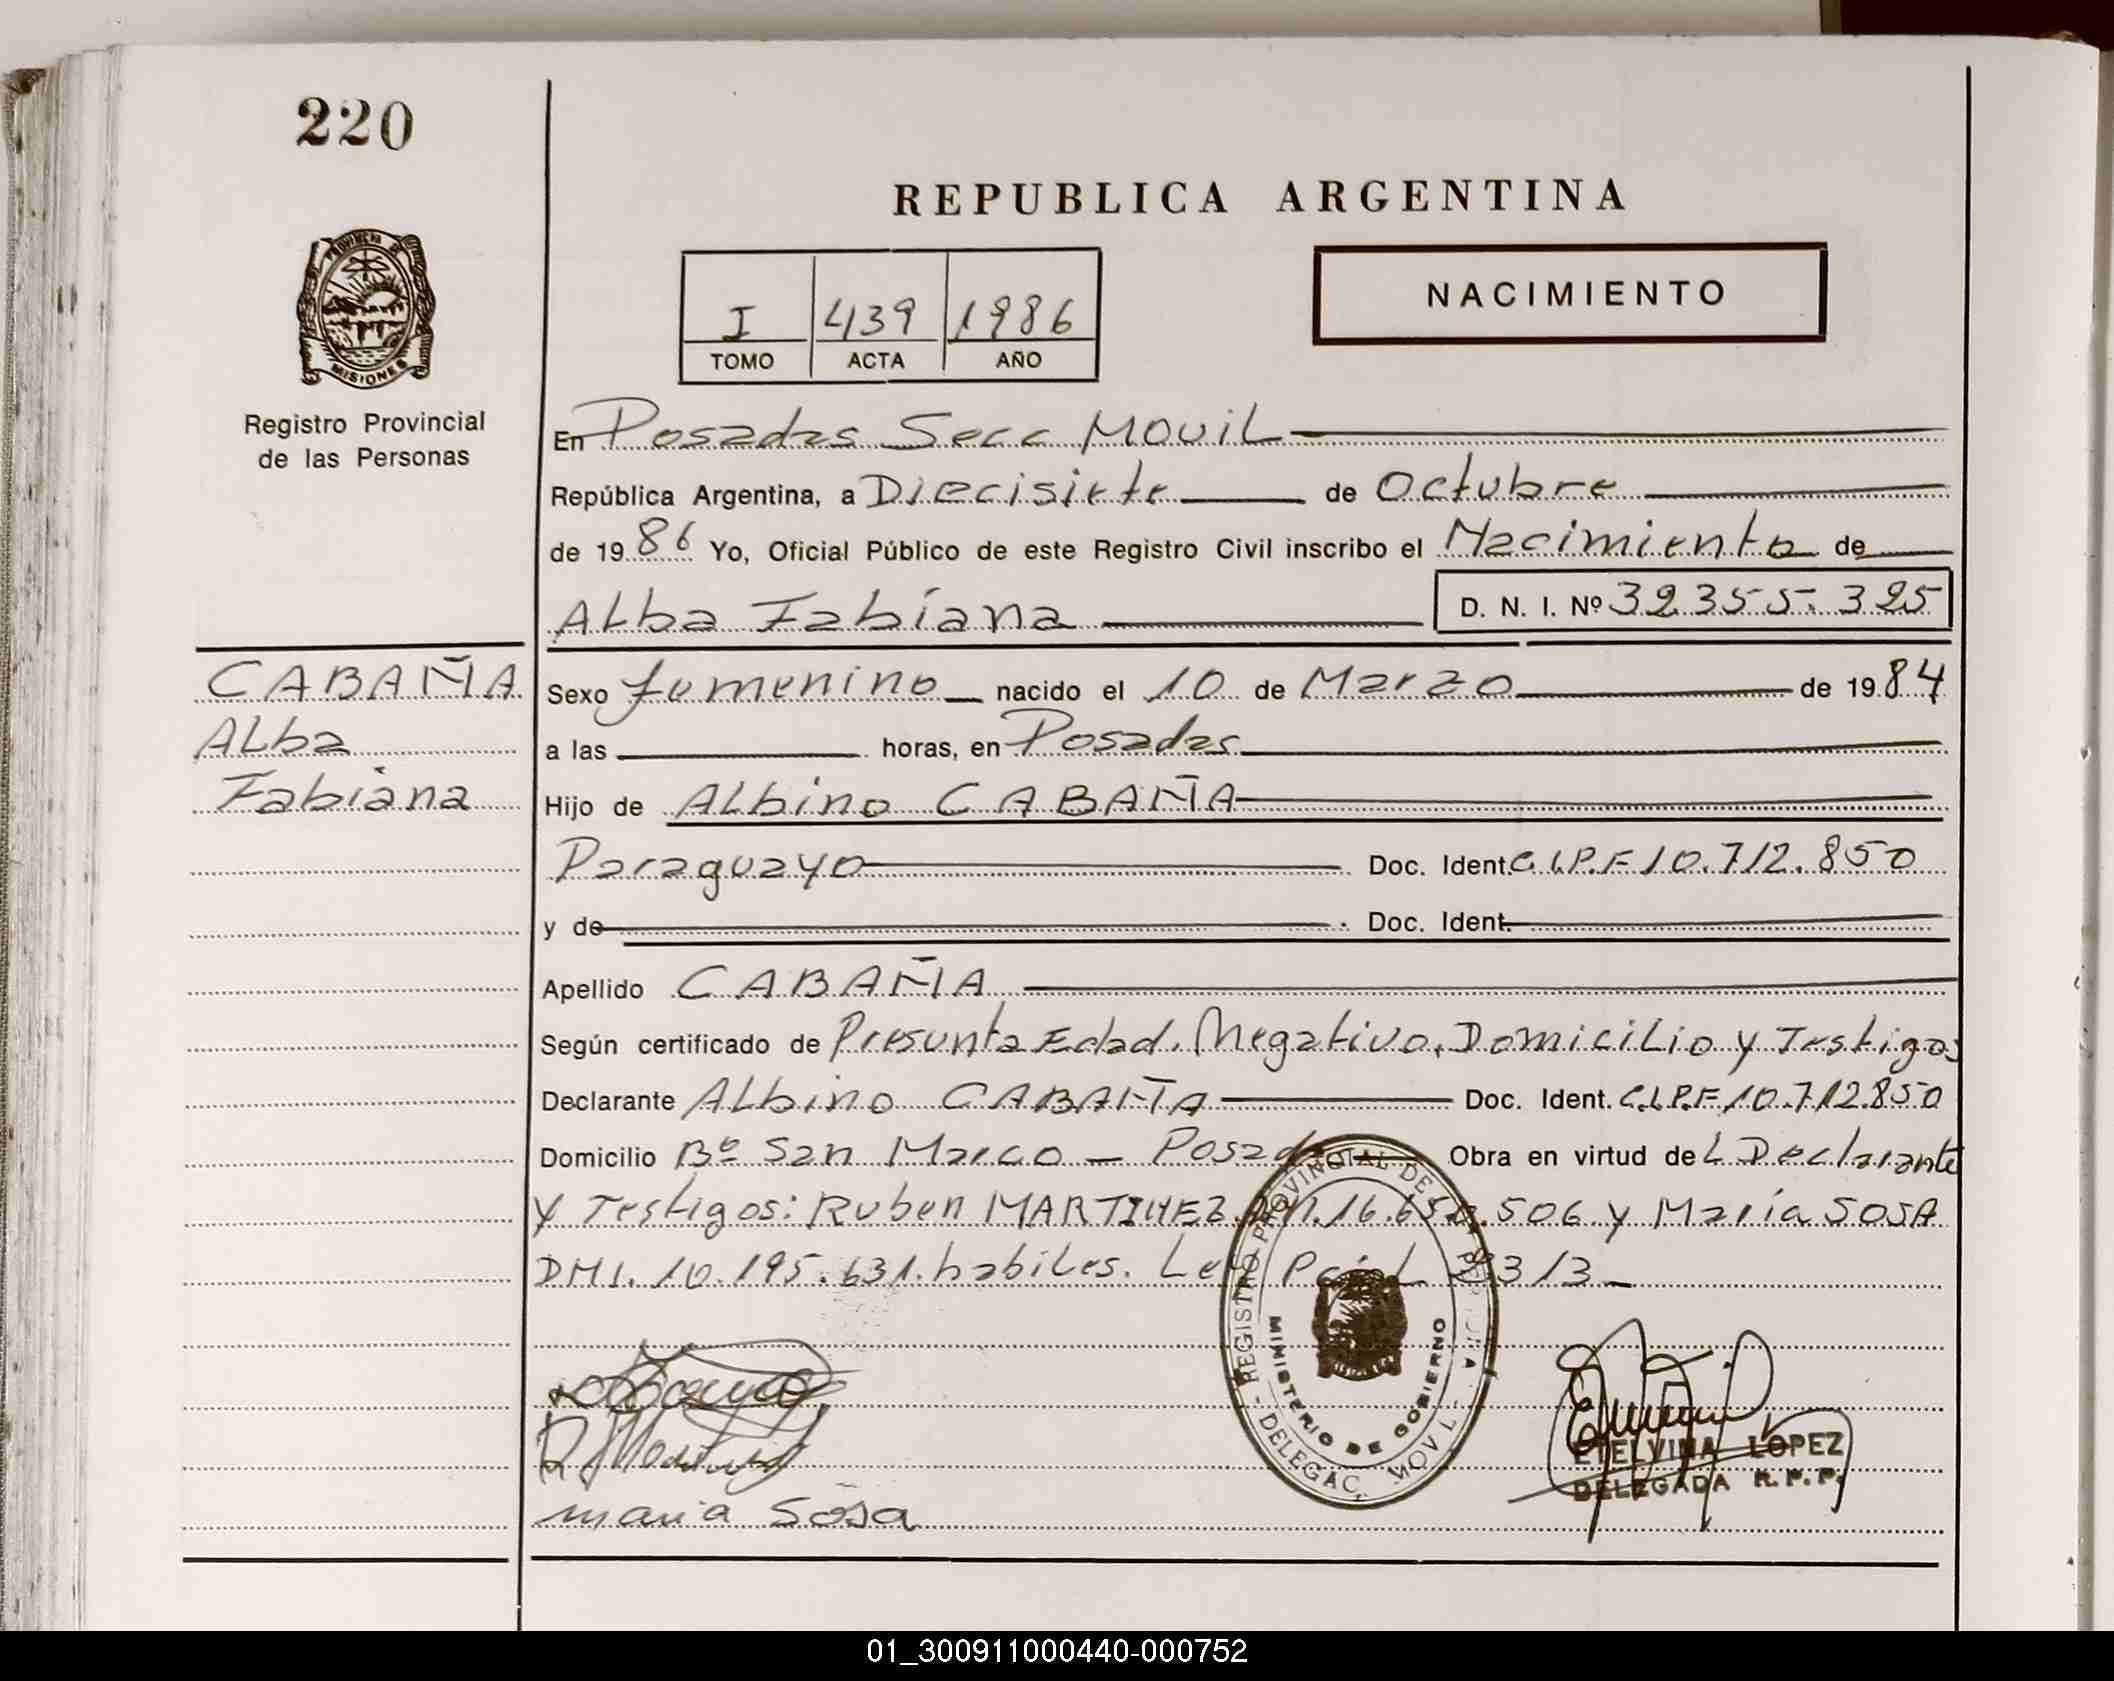 220
REPUBLICA ARGENTINA
PROVINCIA DE
MISIONES
Registro Provincial
de las Personas
I 439 1986
TOMO ACTA AÑO
NACIMIENTO
En Posadas Secc MOVIL
República Argentina, a Diecisiete de Octubre
de 1986 Yo, Oficial Público de este Registro Civil inscribo el Nacimiento de
Alba Fabiana D. N. I. Nº 32.355.325
CABAÑA
Alba
Fabiana
Sexo femenino nacido el 10 de Marzo de 1984
a las horas, en Posadas
Hijo de Albino CABAÑA
Paraguayo Doc. Ident. C.I.P.F 10.712.850
y de Doc. Ident.
Apellido CABAÑA
Según certificado de Presunta Edad, Negativo, Domicilio y Testigos
Declarante Albino CABAÑA Doc. Ident. C.I.P.F. 10.712.850
Domicilio Bº San Marco - Posadas Obra en virtud del Declarante
y Testigos: Ruben MARTINEZ 16.6 .506 y María SOSA
DNI. 10.195.631. habiles. Ley Pcial 2313
REGISTRO PROVINCIAL DE LAS PERSONAS
MINISTERIO DE GOBIERNO
DELEGAC. MOVIL
maria Sosa
ETELVINA LOPEZ
DELEGADA R.P.P.
01_300911000440-000752